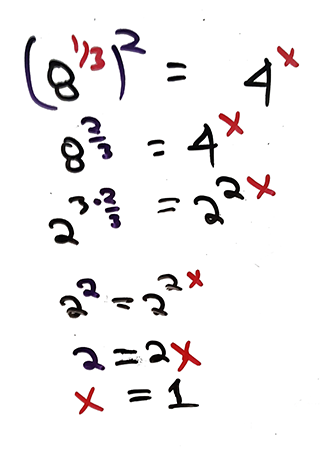 (8^{1/3})^2 = 4^x
8^{2/3} = 4^x
2^{3·2/3} = 2^{2x}
2^2 = 2^{2x}
2 = 2x
x = 1